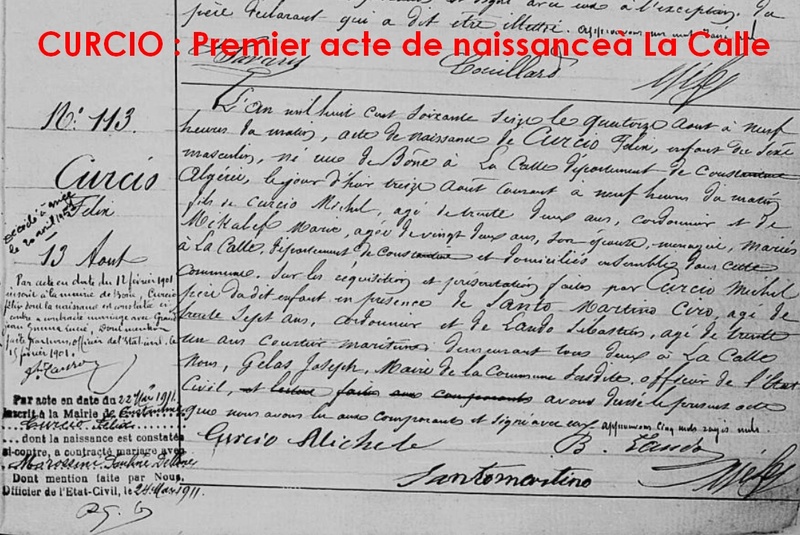 père déclarant qui a dit être
CURCIO : Premier acte de naissanceà La Calle
Couillard
N° 113.
Curcio
Félix
13 Août
L'an mil huit cent soixante seize le quatorze Aout à neuf
heures du matin, acte de naissance de Curcio Félix, enfant du sexe
masculin, né rue de Bône à La Calle département de Constantine
Algérie, le jour d'hier treize Août courant à neuf heures du matin
fils de Curcio Michel, agé de trente deux ans, cordonnier et de
agée de vingt deux ans, son épouse, ménagère, mariés
à La Calle, département de Constantine et domiciliés ensemble dans cette
Commune. Sur les réquisition et présentation faites par Curcio Michel
père dudit enfant en présence de Santo Martino Ciro, agé de
trente sept ans, cordonnier et de Lando Sébastien, agé de trente
un ans Courtier maritime demeurant tous deux à La Calle
Nous, Gelas Joseph, Maire de la Commune susdite, officier de l'Etat
Civil, et lecture faite aux comparants avons dressé le présent acte
que nous avons lu aux comparants et signé avec eux approuvons cinq mots rayés nuls
Curcio Michele
B. Lando
Santomartino
Par acte en date du 12 février 1901
inscrit à la mairie de Bône, Curcio
Félix dont la naissance est constatée ci
contre a contracté mariage avec
officier de l'état civil, le
15 février 1901.
Par acte en date du 22 Mai 1911
inscrit à la Mairie de
Curcio Félix
...dont la naissance est constatée
ci-contre, a contracté mariage avec
Dont mention faite par Nous,
Officier de l'Etat-Civil, le 24 Mai 1911.